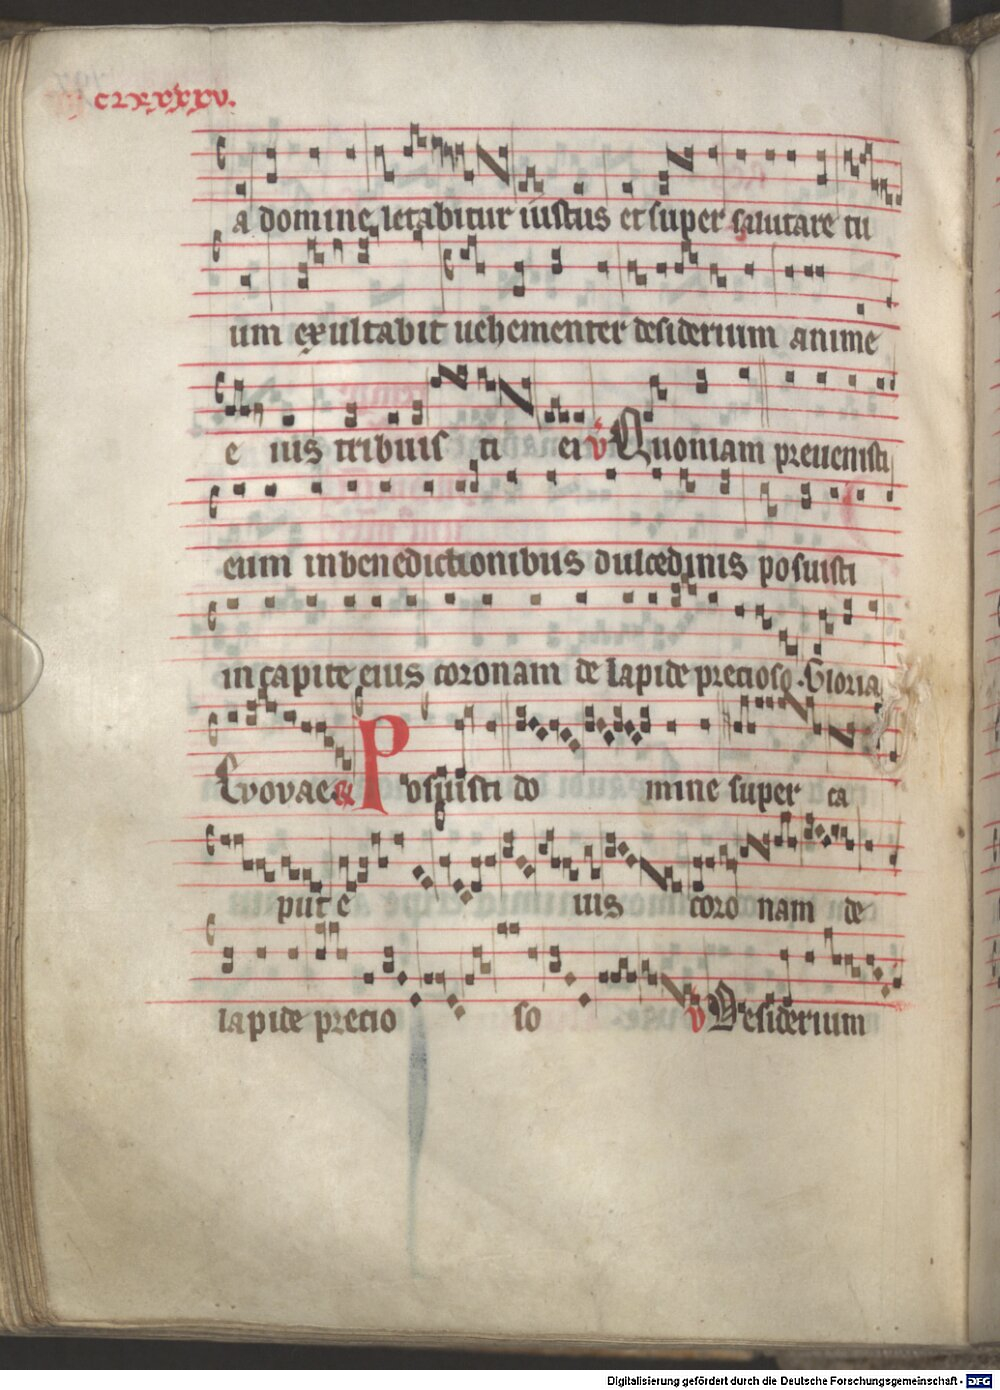 clxxxxv.
a domine letabitur iustus et super salutare tu
um exultabit uehementer desiderium anime
e ius tribuis ti ei v Quoniam preuenisti
eum in benedictionibus dulcedinis posuisti
in capite eius coronam de lapide precioso. Gloria
Evovae P osuisti do mine super ca
put e ius coro nam de
lapide precio so v Desiderium
Digitalisierung gefördert durch die Deutsche Forschungsgemeinschaft - DFG